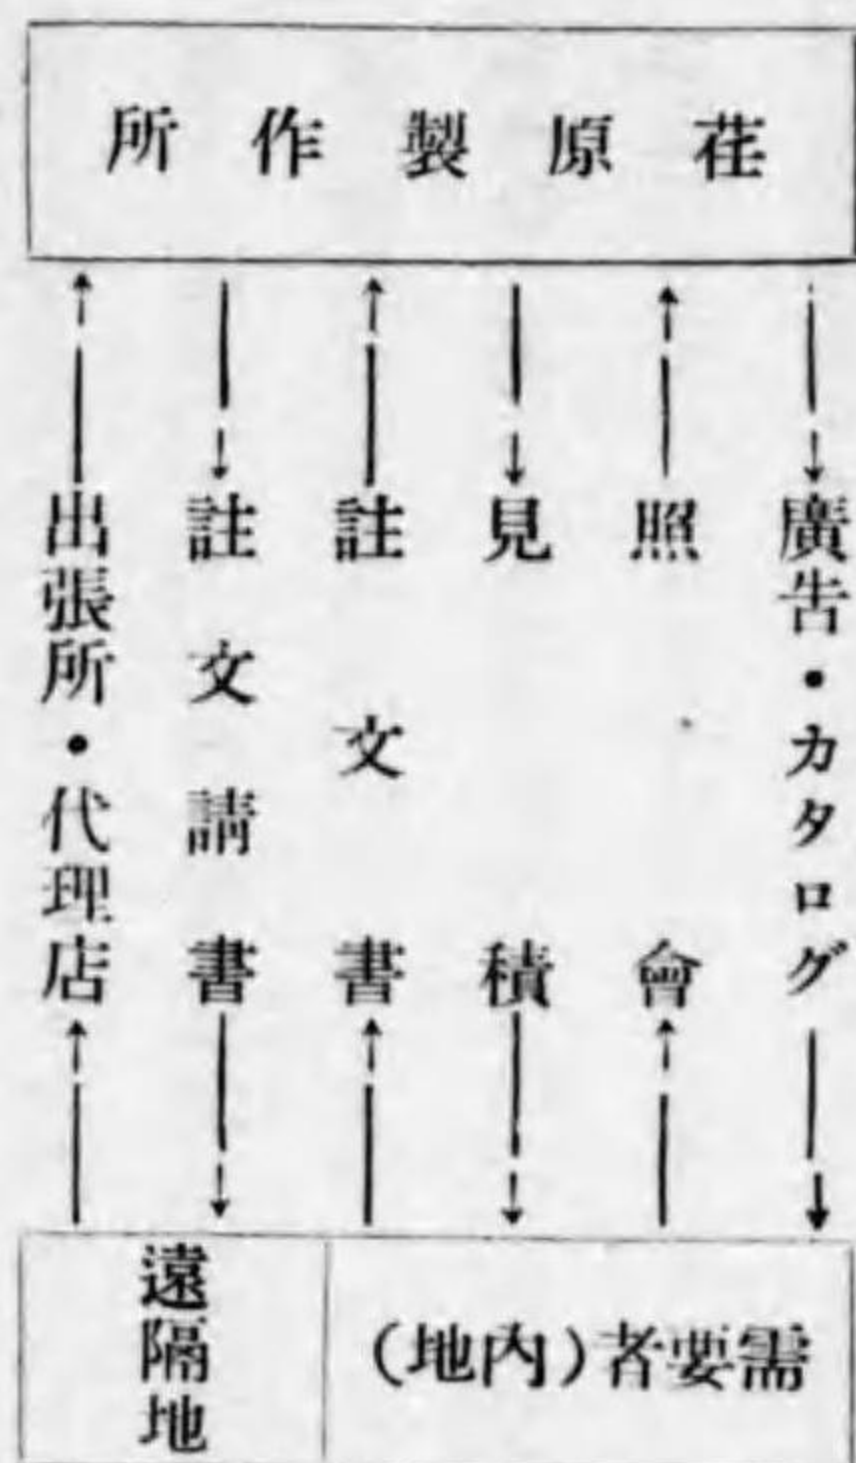 荏原製作所
廣告・カタログ
照會
見積
註文書
註文請書
出張所・代理店
需要者(內地)
遠隔地